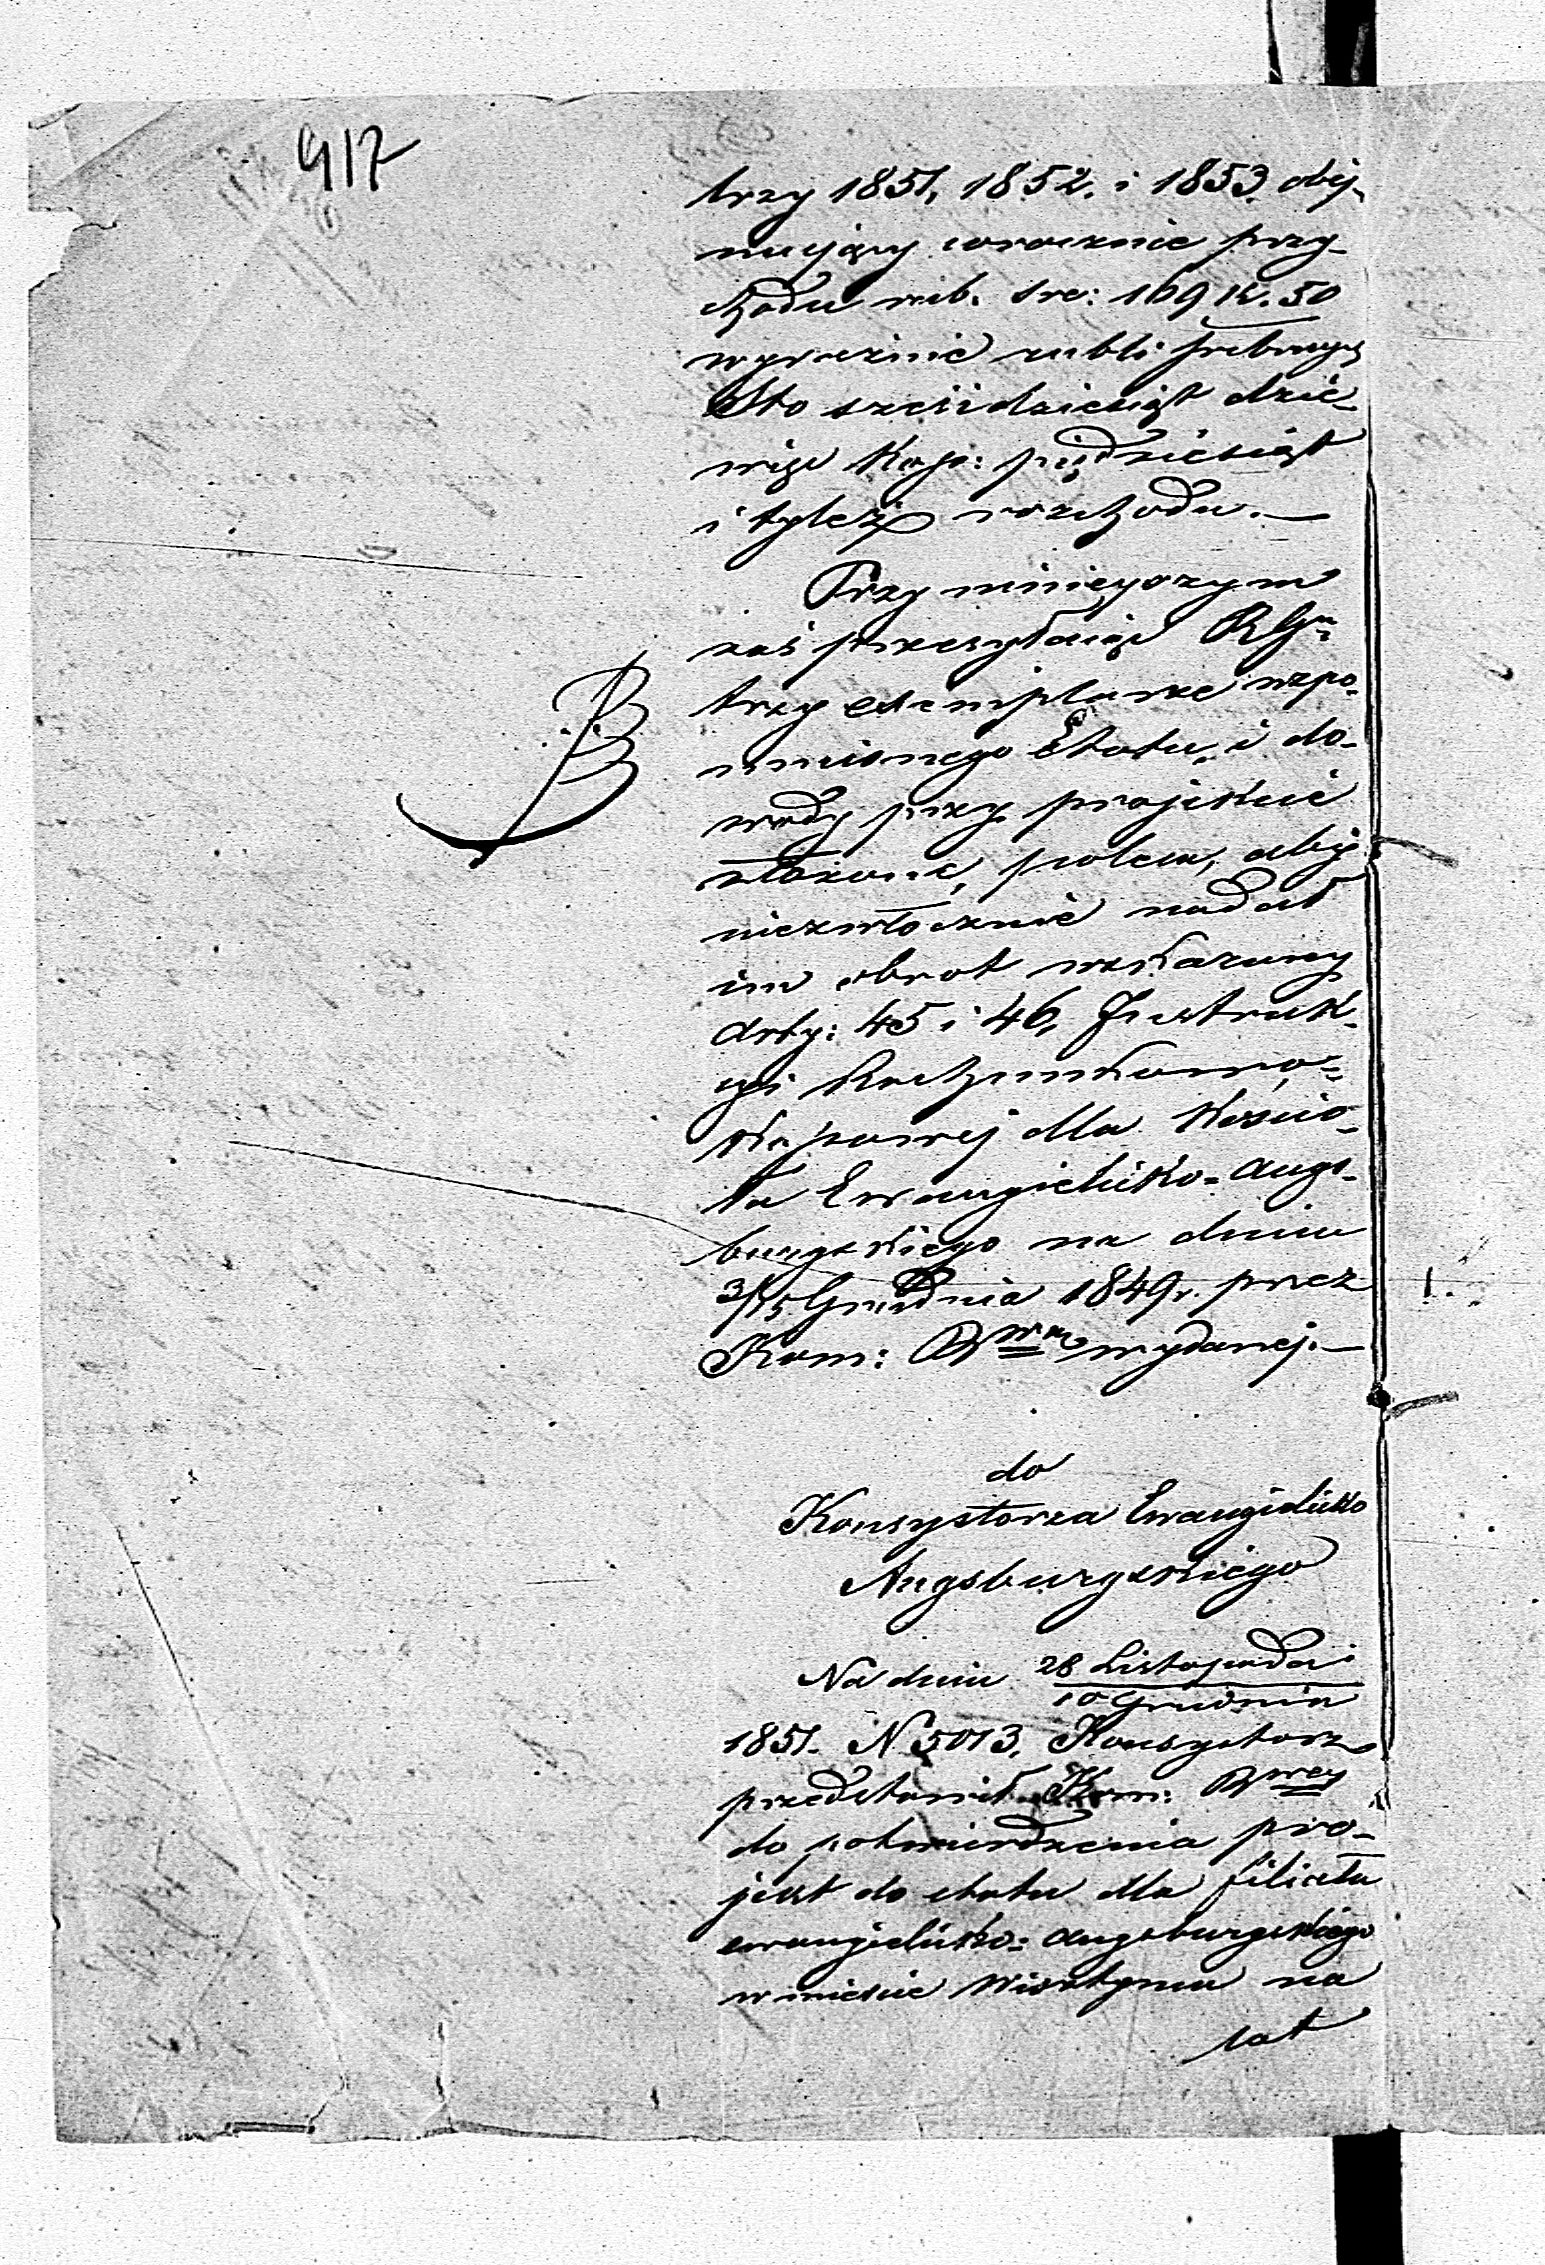 917
trzy 1851, 1852. i 1853. obej-
mujący corocznie przy-
chodu rub. sre: 169 k. 50
wyraźnie rubli srebrnych
Sto sześćdziesiąt dzie-
więć Kop: pięćdziesiąt
i tyleż rozchodu. —
Przy niniejszym
zaś przesyłając RGu
trzy exemplarze wzpo-
mnionego Etatu, i do-
wody przy projekcie
złożone, poleca, aby
niezwłocznie nadał
im obrot wskazany
Arty: 45 i 46, Instruk-
cyi Rachunkowo-
Kassowej dla Kościo-
ła Ewangielicko-Augs-
burgskiego na dniu
3/15 Grudnia 1849 r. przez
Kom: Rwą wydanej. —
do
Konsystorza Ewangielicko
Augsburgskiego
Na dniu 28 Listopada
10 Grudnia
1851. N 5013. Konsystorz
przedstawił Kom: Rwey
do potwierdzenia pro-
jekt do etatu dla filiału
ewangielicko-augsburgskiego
w mieście Wisztyniu na
lat